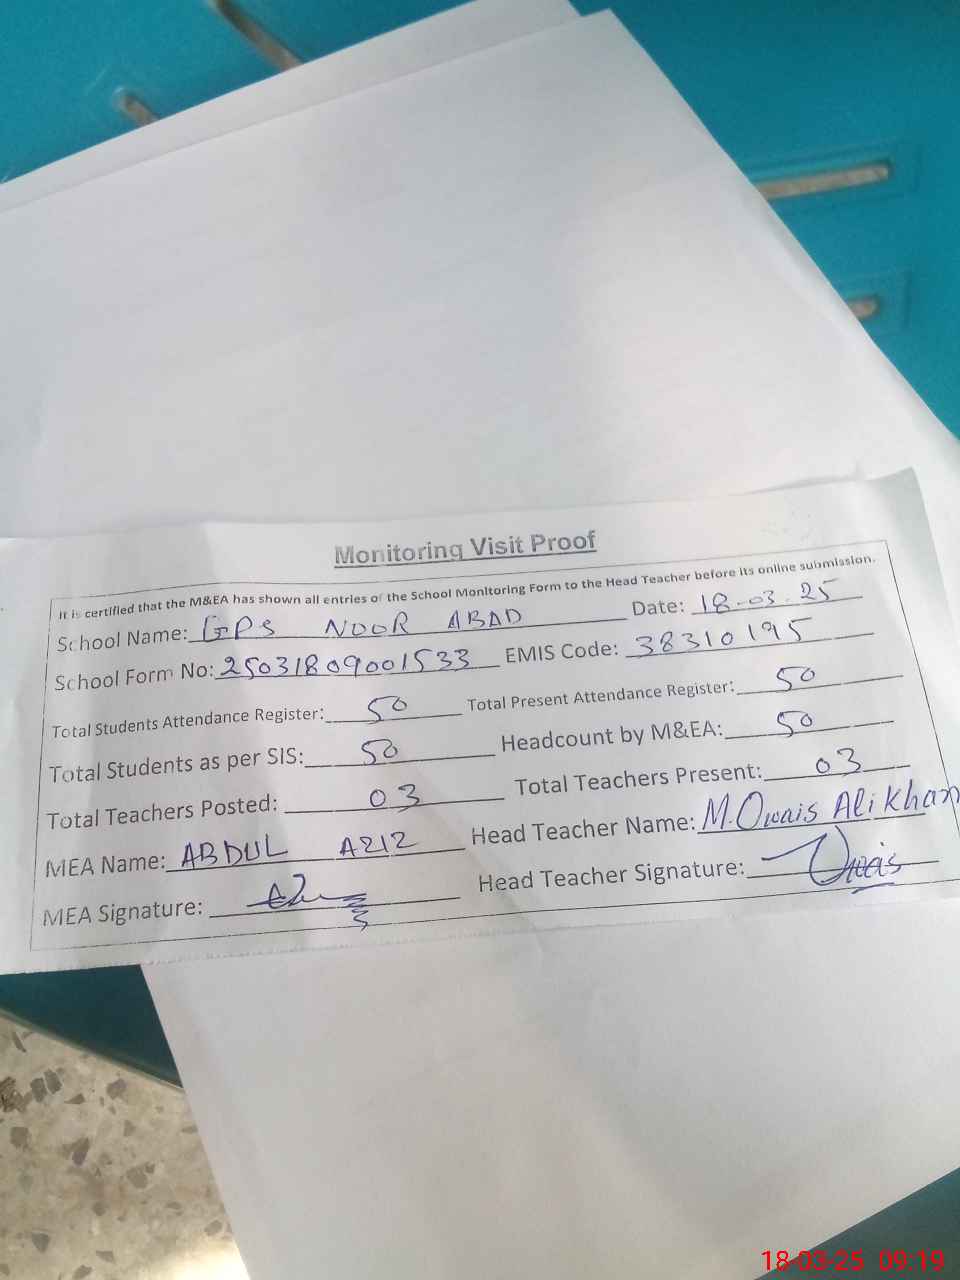 Monitoring Visit Proof
It is certified that the M&EA has shown all entries of the School Monitoring Form to the Head Teacher before its online submission.
School Name: GPS NOOR ABAD Date: 18-03-25
School Form No: 25031809001533 EMIS Code: 38310195
Total Students Attendance Register: 50 Total Present Attendance Register: 50
Total Students as per SIS: 50 Headcount by M&EA: 50
Total Teachers Posted: 03 Total Teachers Present: 03
MEA Name: ABDUL AZIZ Head Teacher Name: M.Owais Ali Khan
MEA Signature: Head Teacher Signature: Owais
18-03-25 09:19